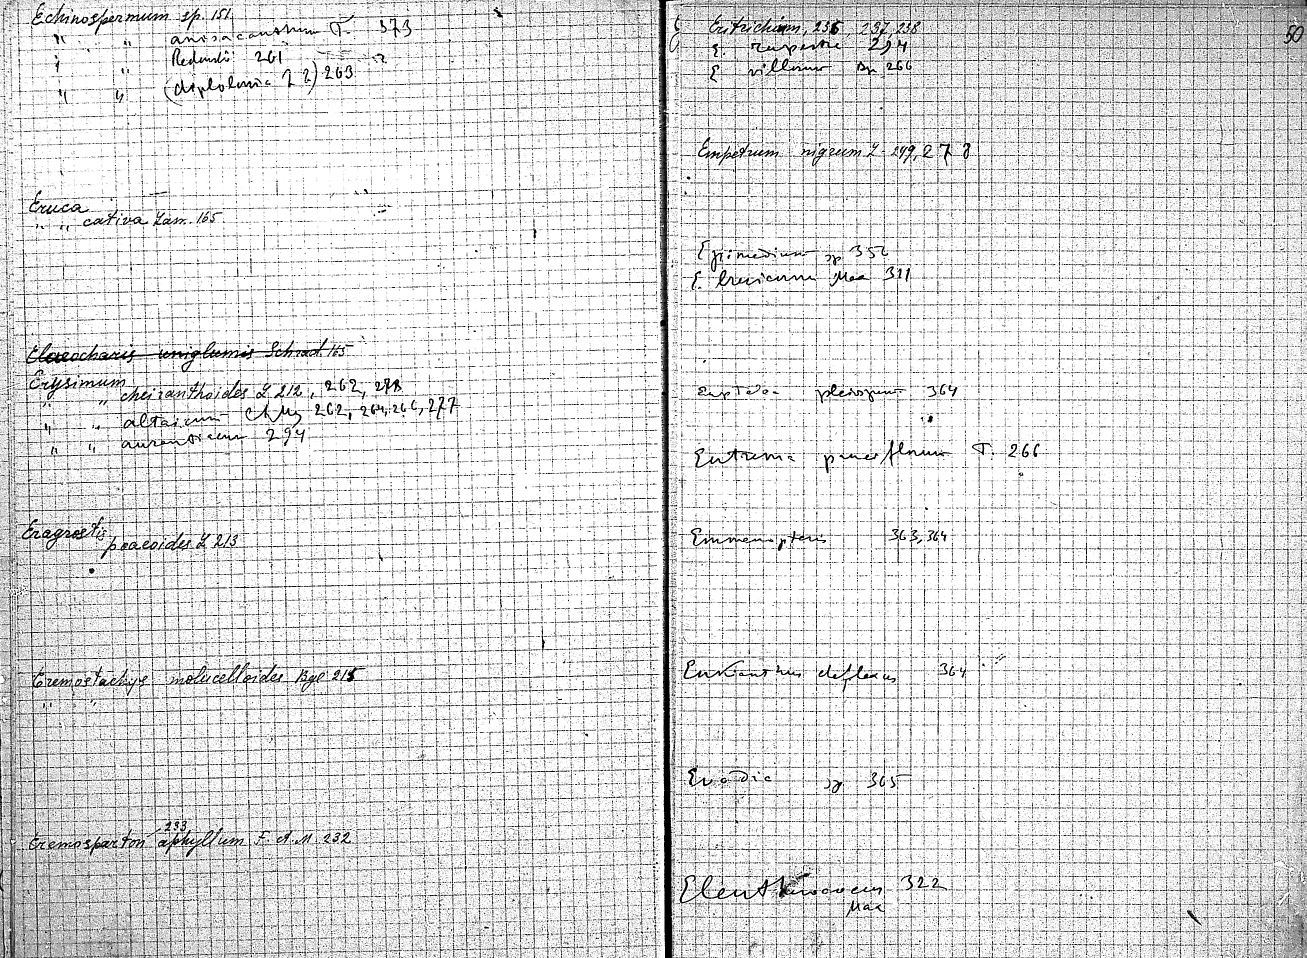 Echinospermum sp. 151
" " anisacanthum T. 373
" " Redowskii 261
" " (diploloma ) 263
Eruca
" " cativa Lam. 165
Elaeocharis uniglumis Schrad. 165
Erysimum
" " cheiranthoides L 212, 262, 278
" " altaicum CAMey 262, 264, 266, 277
" " aurantiacum 294
Eragrostis
poaeoides L 213
Eremostachys molucelloides Bge 215
" "
233
Eremosparton aphyllum F. et M. 232
50
Eritrichium, 236, 237, 238
E. rupestre 294
E villosum Bge 266
Empetrum nigrum L. 249, 278
Epimedium sp 352
E. brevicornu Max 311
pleiosperm 364
Eutrema pauciflorum T. 266
Emmenopteris 363, 364
Enkianthus deflexus 364
Evodia sp 365
Eleutherococcus 322
Max